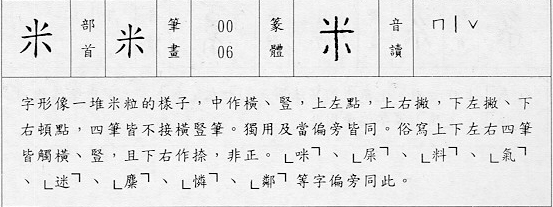 米 部首 米 筆畫 00 06 篆體 米 音讀 ㄇㄧˇ
字形像一堆米粒的樣子，中作橫、豎，上左點，上右撇，下左撇、下
右頓點，四筆皆不接橫豎筆。獨用及當偏旁皆同。俗寫上下左右四筆
皆觸橫、豎，且下右作捺，非正。「咪」、「屎」、「料」、「氣」
、「迷」、「麋」、「憐」、「鄰」等字偏旁同此。